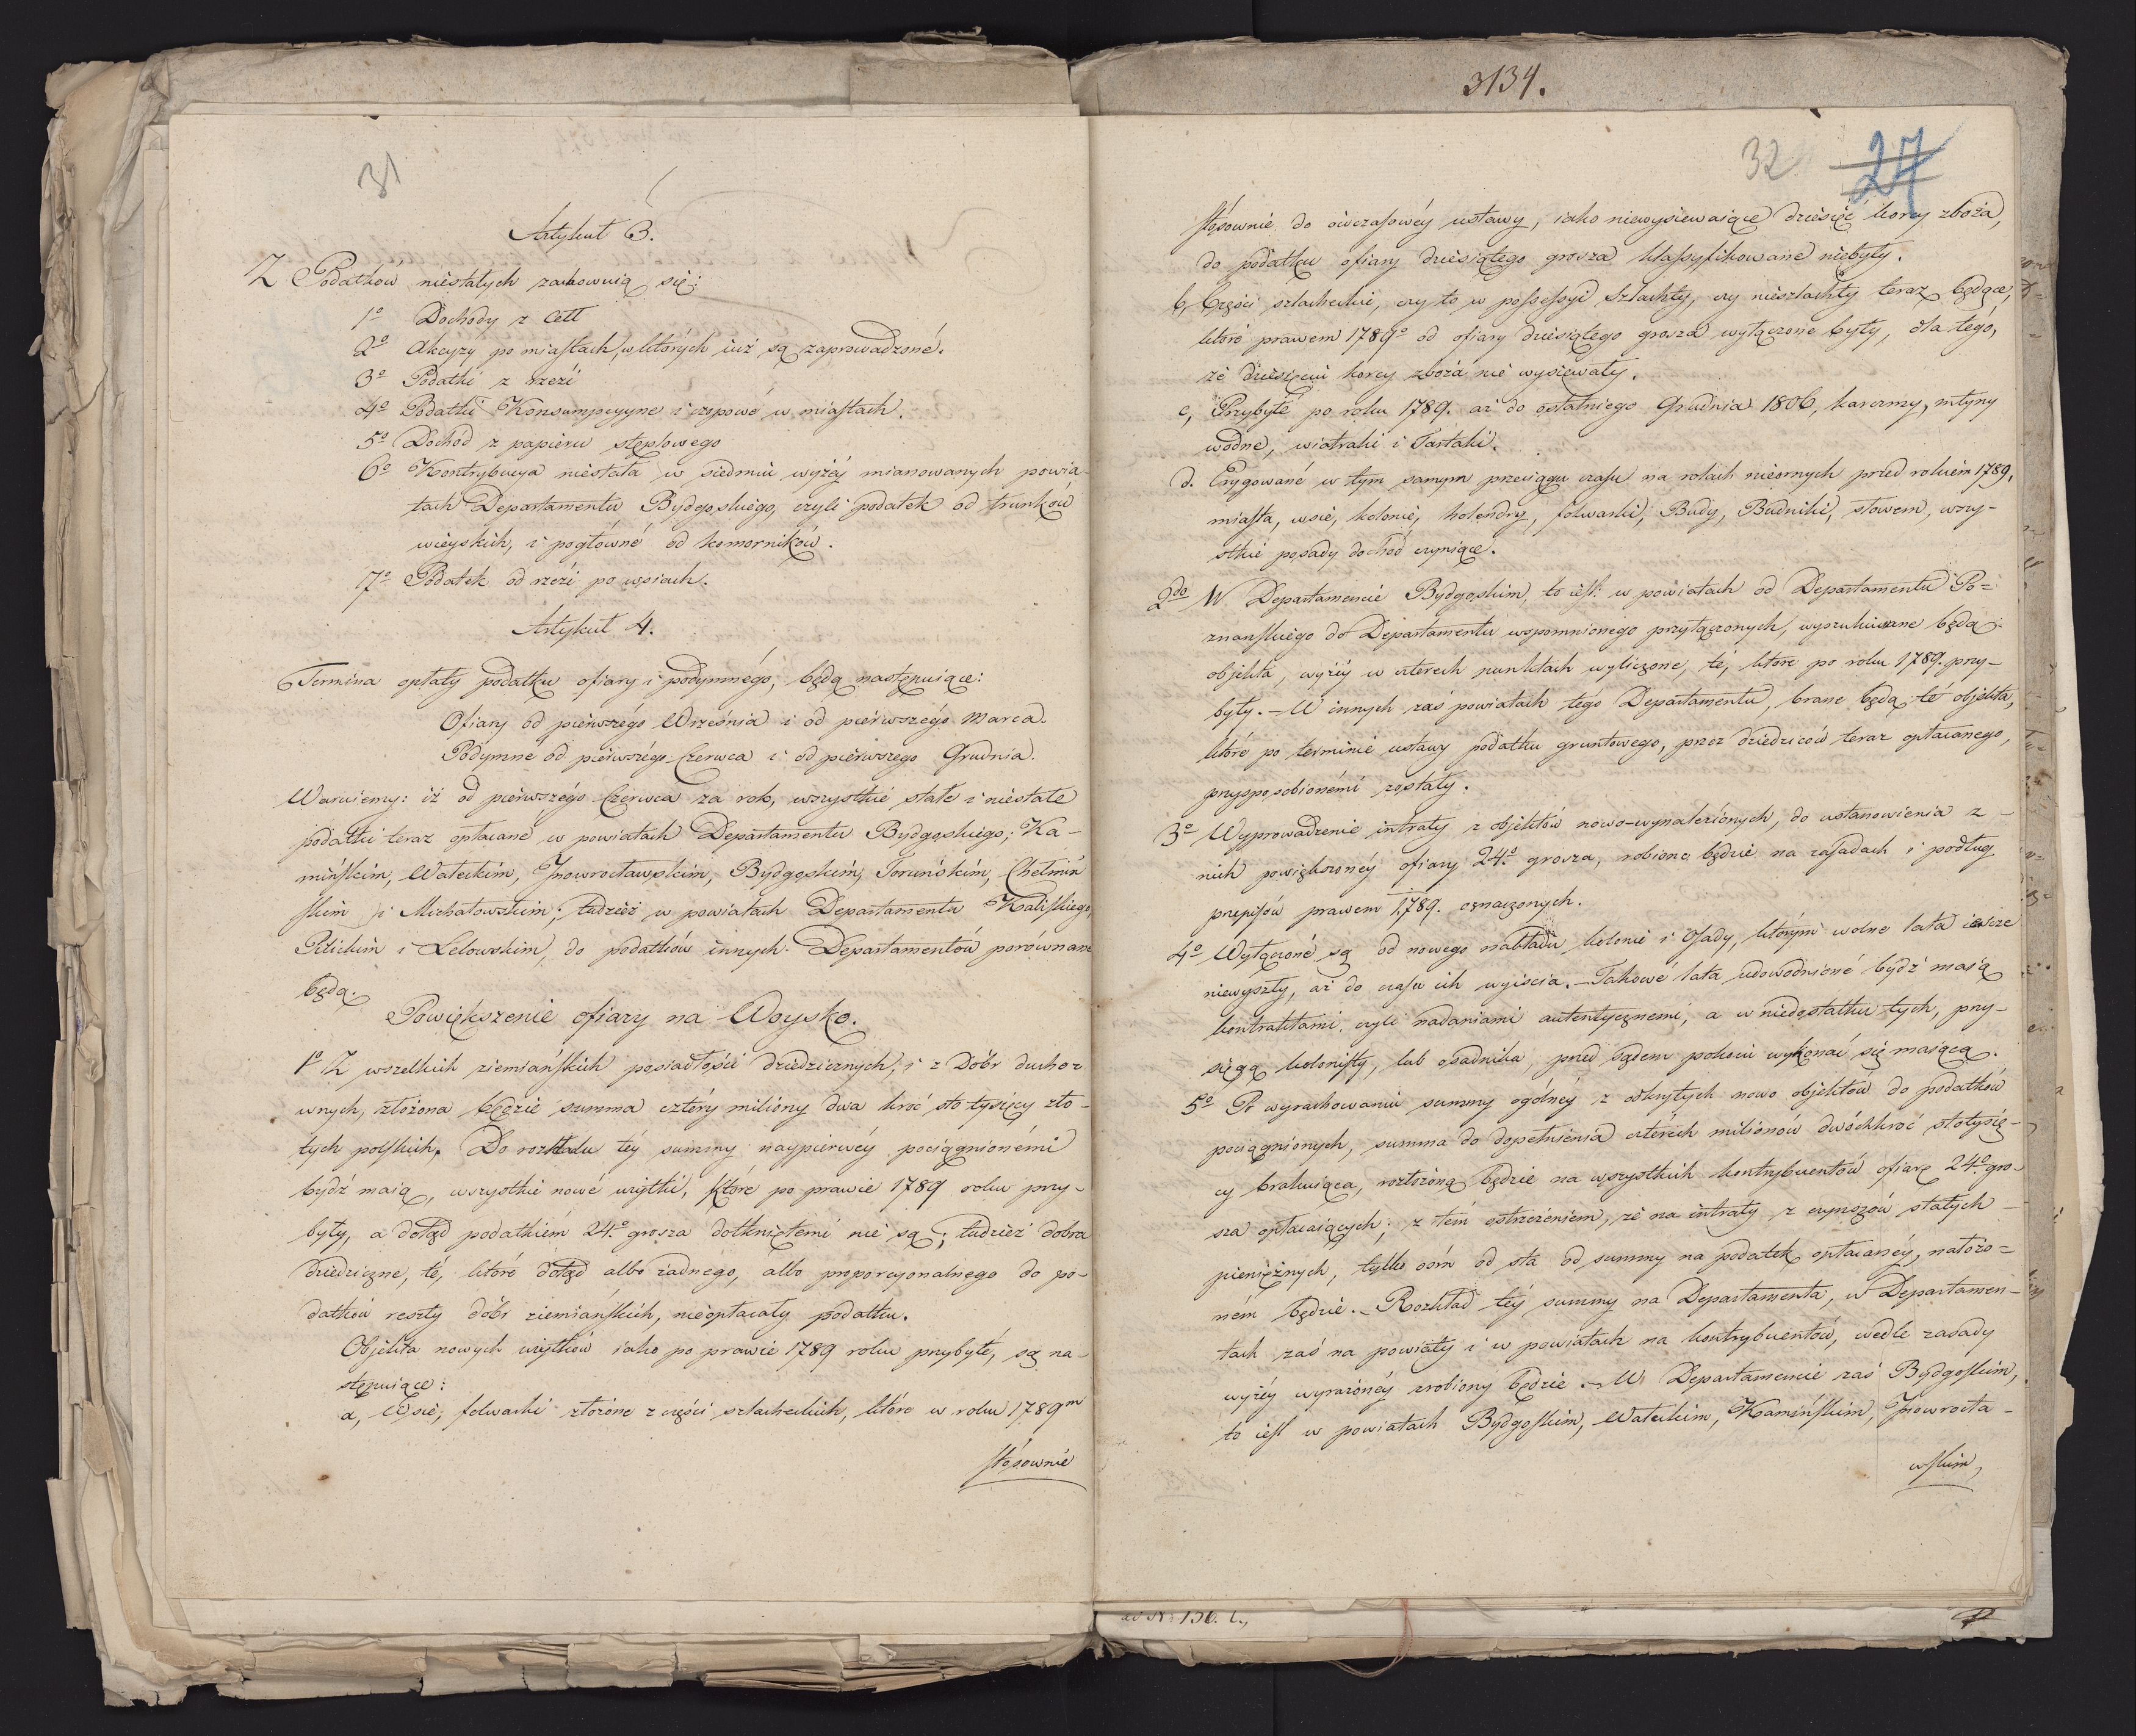 31
Artykuł 3.
Z Podatków niestałych zachowuią się:
1º Dochody z Cełł
2º Akcyzy po miastach, w których iuż są zaprowadzoné.
3º Podatki z rzezi
4º Podatki Konsumpcyyne i czopowé w miastach.
5º Dochód z papieru stęplowego
6º Kontrybucya niestała w siedmiu wyżéy mianowanych powia-
tach Departamentu Bydgoskiego, czyli podatek od trunków
wieyskich, i pogłówné od komorników.
7º Podatek od rzezi po wsiach.
Artykuł 4.
Termina opłaty podatku ofiary i podymnégo, będą następuiące:
Ofiary od pierwszégo Września i od pierwszégo Marca.
Podymné od pierwszégo Czerwca i od pierwszego Grudnia.
Waruiemy: iż od pierwszégo Czerwca za rok, wszystkie stałe i niestałe
podatki teraz opłacane w powiatach Departamentu Bydgoskiégo; Ka-
mińskim, Wałeckim, Jnowrocławskim, Bydgoskim, Toruńskim, Chełmiń
skim i Michałowskim; tudzież w powiatach Departamentu Kaliskiego,
Pilickim i Lelowskim, do podatków innych Departamentów porównane
będą.
Powiększenie ofiary na Woysko.
1º Z wszelkich ziemiańskich posiadłości dziedzicznych, i z Dóbr ducho-
wnych, złożona będzie summa cztéry miliony dwa kroć sto tysięcy zło-
tych polskich. Do rozkładu téy summy naypierwéy pociągnionémi
bydź maią, wszystkie nowé użytki, które po prawie 1789 roku przy-
były, a dotąd podatkiém 24º grosza dotkniętemi nie są; tudzież dobra
dziedziczne, té, któré dotąd albo żadnégo, albo proporcyonalnego do po-
datków reszty dóbr ziemiańskich, nieopłacały podatku.
Objekta nowych użytków iako po prawie 1789 roku przybyłé, są na-
stępuiące:
a, Wsie, folwarki złożone z części szlacheckich, któré w roku 1789m
stósownie
3134.
32 27
stósownie do ówczasowéy ustawy, iako niewysiewaiące dziesięć korcy zboża,
do podatku ofiary dziesiątego grosza klassyfikowane niebyły.
b, Części szlacheckie, czy to w possessyi Szlachty, czy nieszlachty teraz będące,
któré prawem 1789º od ofiary dziesiątego grosza wyłączone były, dla tégo,
że dziesięciu korcy zboża nie wysiewały.
c, Przybyłé po roku 1789. aż do ostatniego Grudnia 1806, karczmy, młyny
wodne, wiatraki i Tartaki.
d. Erygowané w tym samym przeciągu czasu na rolach niesornych przed rokiém 1789,
miasta, wsie, kolonie, holendry, folwarki, Budy, Budniki, słowem, wszy-
stkie posady dochód czyniące.
2do W Departamencie Bydgoskim, to iest: w powiatach od Departamentu Po=
znańskiégo do Departamentu wspomnionego przyłączonych, wyszukiwane będą
objekta, wyżéy w cztérech punktach wyliczone, té, któré po roku 1789. przy-
były. - W innych zaś powiatach tégo Departamentu, brane będą té objekta,
któré po terminie ustawy podatku gruntowego, przez dziedziców teraz opłacanego,
przysposobionémi zostały.
3º Wyprowadzenie intraty z objektów nowo-wynalezionych, do ustanowienia z -
nich powiększonéy ofiary 24º grosza, robione będzie na zasadach i podług
przepisów prawem 1789. oznaczonych.
4º Wyłączoné są od nowego nakładu kolonie i Osady, którym wolne lata ieszcze
niewyszły, aż do czasu ich wyiścia. - Takowé lata udowodnioné bydź maią
kontraktami, czyli nadaniami autentycznemi, a w niedostatku tych, przy-
sięgą kolonisty, lub osadnika, przed sądem pokoiu wykonać się maiącą.
5º Po wyrachowaniu summy ogólnéy z odkrytych nowo objektów do podatków
pociągnionych, summa do dopełnienia cztérech milionów dwóchkroć stotysię-
cy brakuiąca, rozłożoną będzie na wszystkich kontrybuentów ofiarę 24º gro-
sza opłacaiących; z tém ostrzeżeniem, że na intraty z czynszów stałych -
pieniężnych, tylko óśm od sta od summy na podatek opłacanéy, nałożo=
ném będzie. - Rozkład téy summy na Departamenta, w Departamen-
tach zaś na powiaty i w powiatach na kontrybuentów, wedle zasady
wyżéy wyrażonéy zrobiony będzie. - W Departamencie zaś Bydgoskim,
to iest w powiatach Bydgoskim, Wałeckim, Kamińskim, Jnowrocła-
wskim,